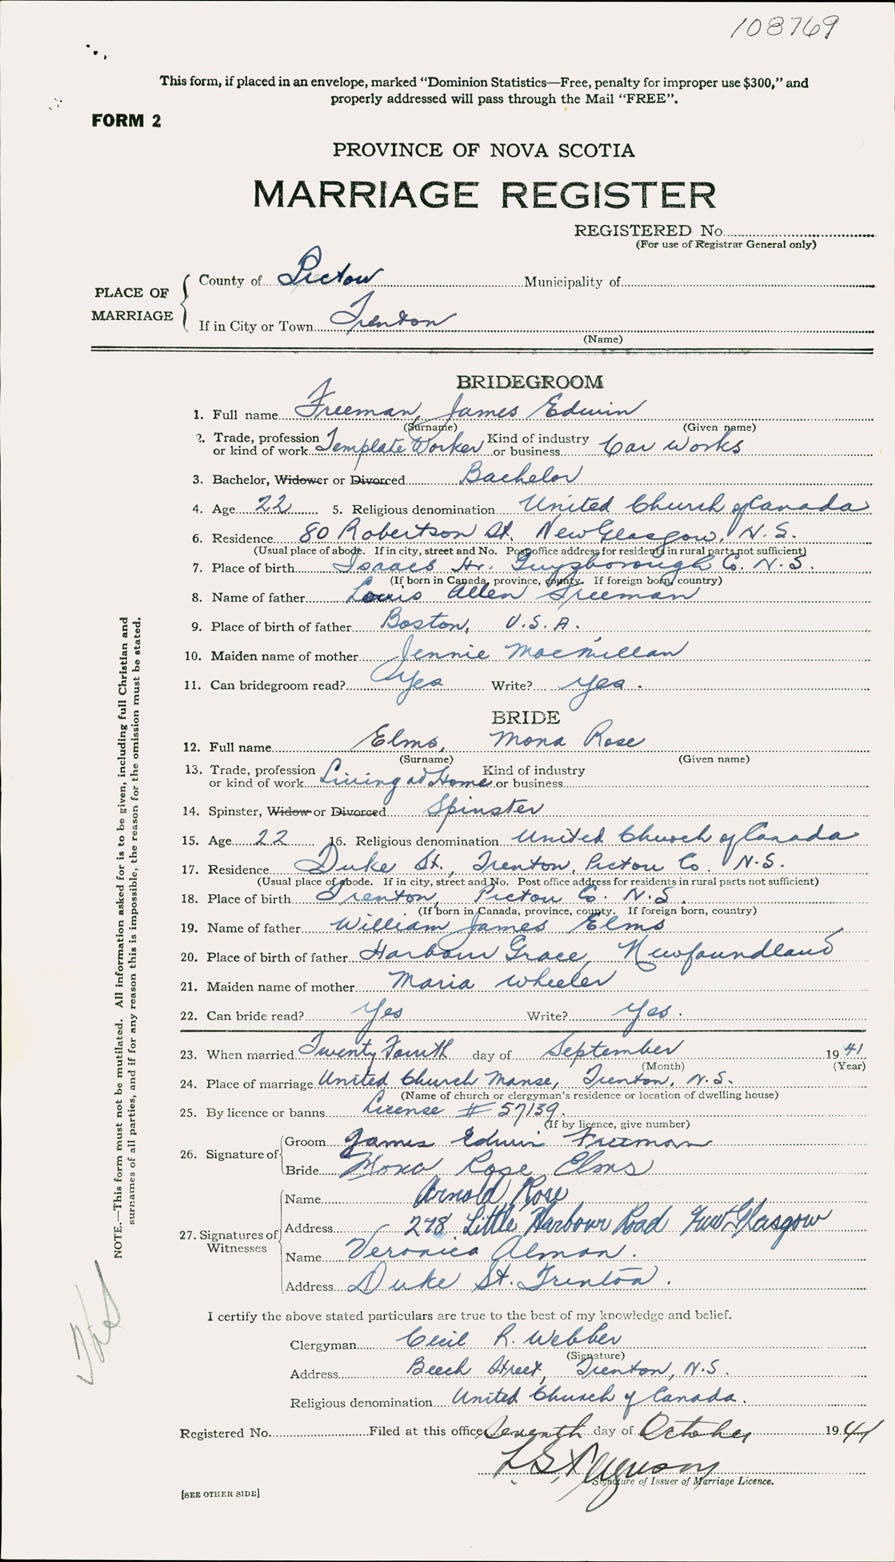 108769
This form, if placed in an envelope, marked "Dominion Statistics—Free, penalty for improper use $300," and
properly addressed will pass through the Mail "FREE".
FORM 2
PROVINCE OF NOVA SCOTIA
MARRIAGE REGISTER
REGISTERED No.
(For use of Registrar General only)
PLACE OF MARRIAGE
County of Pictou Municipality of
If in City or Town Trenton
(Name)
BRIDEGROOM
1. Full name Freeman, James Edwin
(Surname) (Given name)
2. Trade, profession or kind of work Template Worker Kind of industry or business Car Works
3. Bachelor, Widower or Divorced Bachelor
4. Age 22 5. Religious denomination United Church of Canada
6. Residence 80 Robertson St. New Glasgow, N.S.
(Usual place of abode. If in city, street and No. Post office address for residents in rural parts not sufficient)
7. Place of birth Isaacs Hr. Guysborough Co. N.S.
(If born in Canada, province, county. If foreign born, country)
8. Name of father Louis Allen Freeman
9. Place of birth of father Boston, U.S.A.
10. Maiden name of mother Jennie MacMillan
11. Can bridegroom read? Yes Write? Yes.
BRIDE
12. Full name Elms, Mona Rose
(Surname) (Given name)
13. Trade, profession or kind of work Living at Home Kind of industry or business
14. Spinster, Widow or Divorced Spinster
15. Age 22 16. Religious denomination United Church of Canada
17. Residence Duke St., Trenton, Pictou Co. N.S.
(Usual place of abode. If in city, street and No. Post office address for residents in rural parts not sufficient)
18. Place of birth Trenton, Pictou Co. N.S.
(If born in Canada, province, county. If foreign born, country)
19. Name of father William James Elms
20. Place of birth of father Harbour Grace, Newfoundland
21. Maiden name of mother Maria Wheeler
22. Can bride read? Yes Write? Yes.
23. When married Twenty Fourth day of September 1941
(Month) (Year)
24. Place of marriage United Church Manse, Trenton, N.S.
(Name of church or clergyman's residence or location of dwelling house)
25. By licence or banns License # 57139.
(If by licence, give number)
26. Signature of
Groom James Edwin Freeman
Bride Mona Rose Elms
27. Signatures of Witnesses
Name Arnold Rose
Address 278 Little Harbour Road New Glasgow
Name Veronica Alman.
Address Duke St. Trenton.
I certify the above stated particulars are true to the best of my knowledge and belief.
Clergyman Cecil R. Webber
(Signature)
Address Beech Street, Trenton, N.S.
Religious denomination United Church of Canada.
Registered No. Filed at this office Seventh day of October 1941
L S Ferguson
Signature of Issuer of Marriage Licence.
[SEE OTHER SIDE]
NOTE.—This form must not be mutilated. All information asked for is to be given, including full Christian and
surnames of all parties, and if for any reason this is impossible, the reason for the omission must be stated.